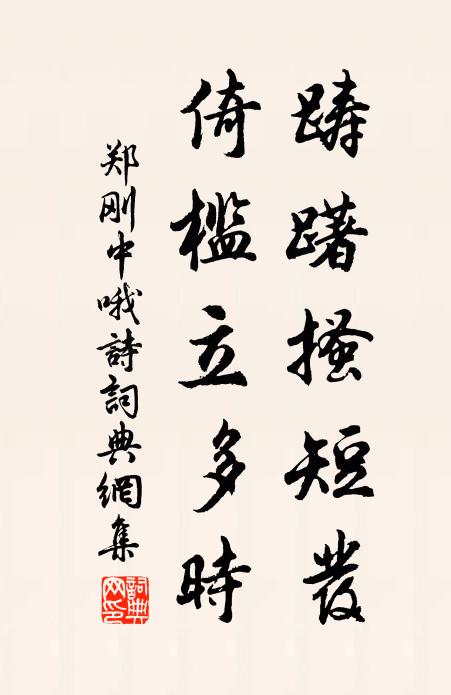 踌躇搔短發
倚檻立多時
郑刚中哦詩詞典網集
詞典網印